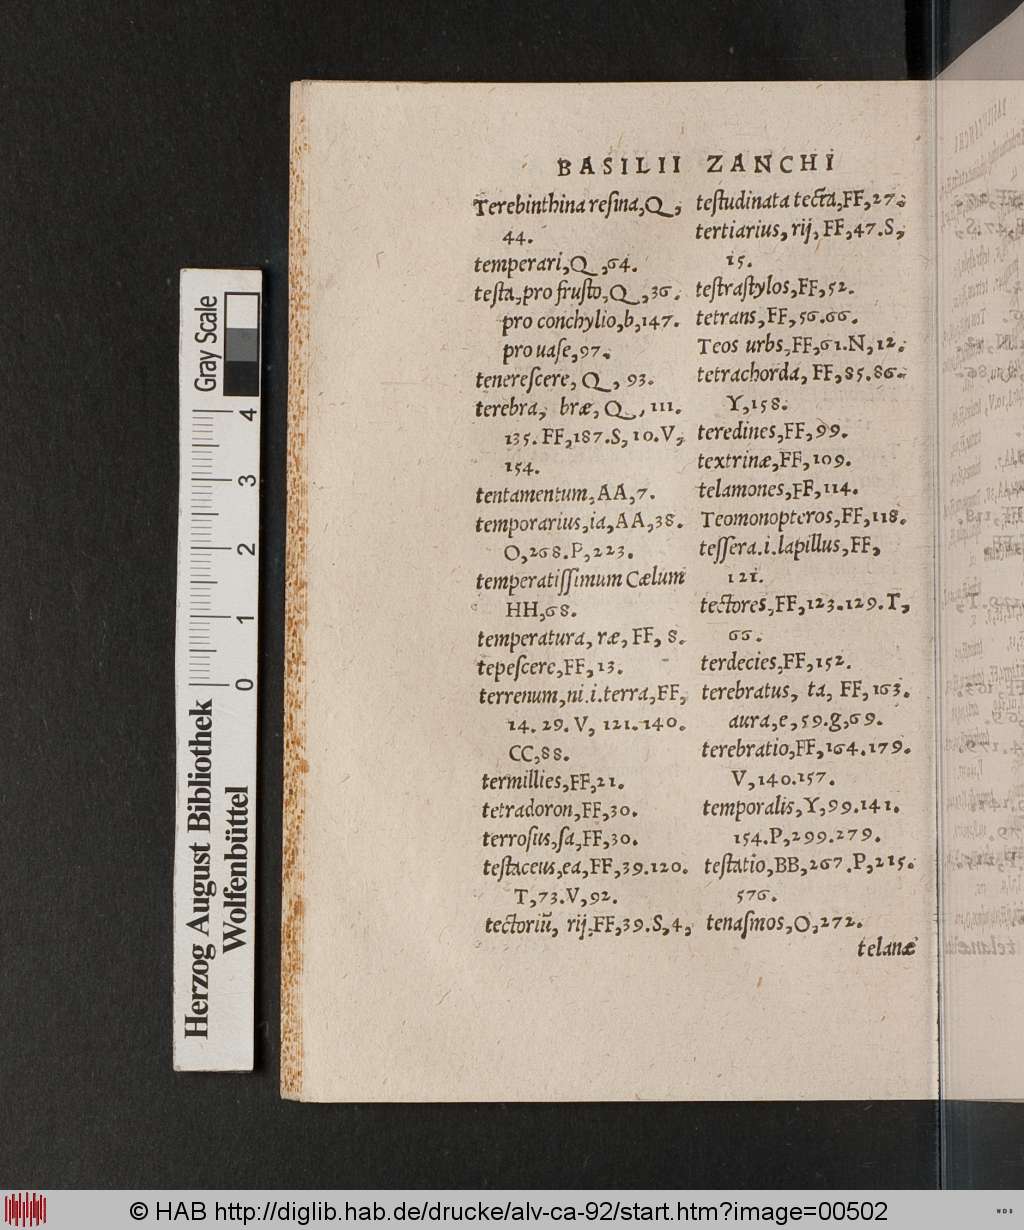 BASILII ZANCHI
Terebinthina resina,Q,
44.
temperari,Q,64.
testa,pro frusto,Q,36.
pro conchylio,b,147.
pro uase,97.
tenerescere, Q, 93.
terebra, bræ, Q, 111.
135. FF,187.S,10.V,
154.
tentamentum,AA,7.
temporarius,ia,AA,38.
O,268.P,223.
temperatissimum Cælum
HH,68.
temperatura, ræ, FF, 8.
tepescere,FF,13.
terrenum,ni.i.terra,FF,
14. 29. V, 121.140.
CC,88.
termillies,FF,21.
tetradoron,FF,30.
terrosus,sa,FF,30.
testaceus,ea,FF,39.120.
T,73.V,92.
tectoriũ, rij,FF,39.S,4,
testudinata tecta,FF,27.
tertiarius, rij, FF,47.S,
15.
testrastylos,FF,52.
tetrans,FF,56.66.
Teos urbs,FF,61.N,12.
tetrachorda, FF,85.86.
Y,158.
teredines,FF,99.
textrinæ,FF,109.
telamones,FF,114.
Teomonopteros,FF,118.
tessera.i.lapillus,FF,
121.
tectores,FF,123.129.T,
66.
terdecies,FF,152.
terebratus, ta, FF,163.
aura,e,59.g,69.
terebratio,FF,164.179.
V,140.157.
temporalis,Y,99.141.
154.P,299.279.
testatio,BB,267.P,215.
576.
tenasmos,O,272.
telanæ
Gray Scale
4
3
2
1
0
Herzog August Bibliothek
Wolfenbüttel
© HAB http://diglib.hab.de/drucke/alv-ca-92/start.htm?image=00502